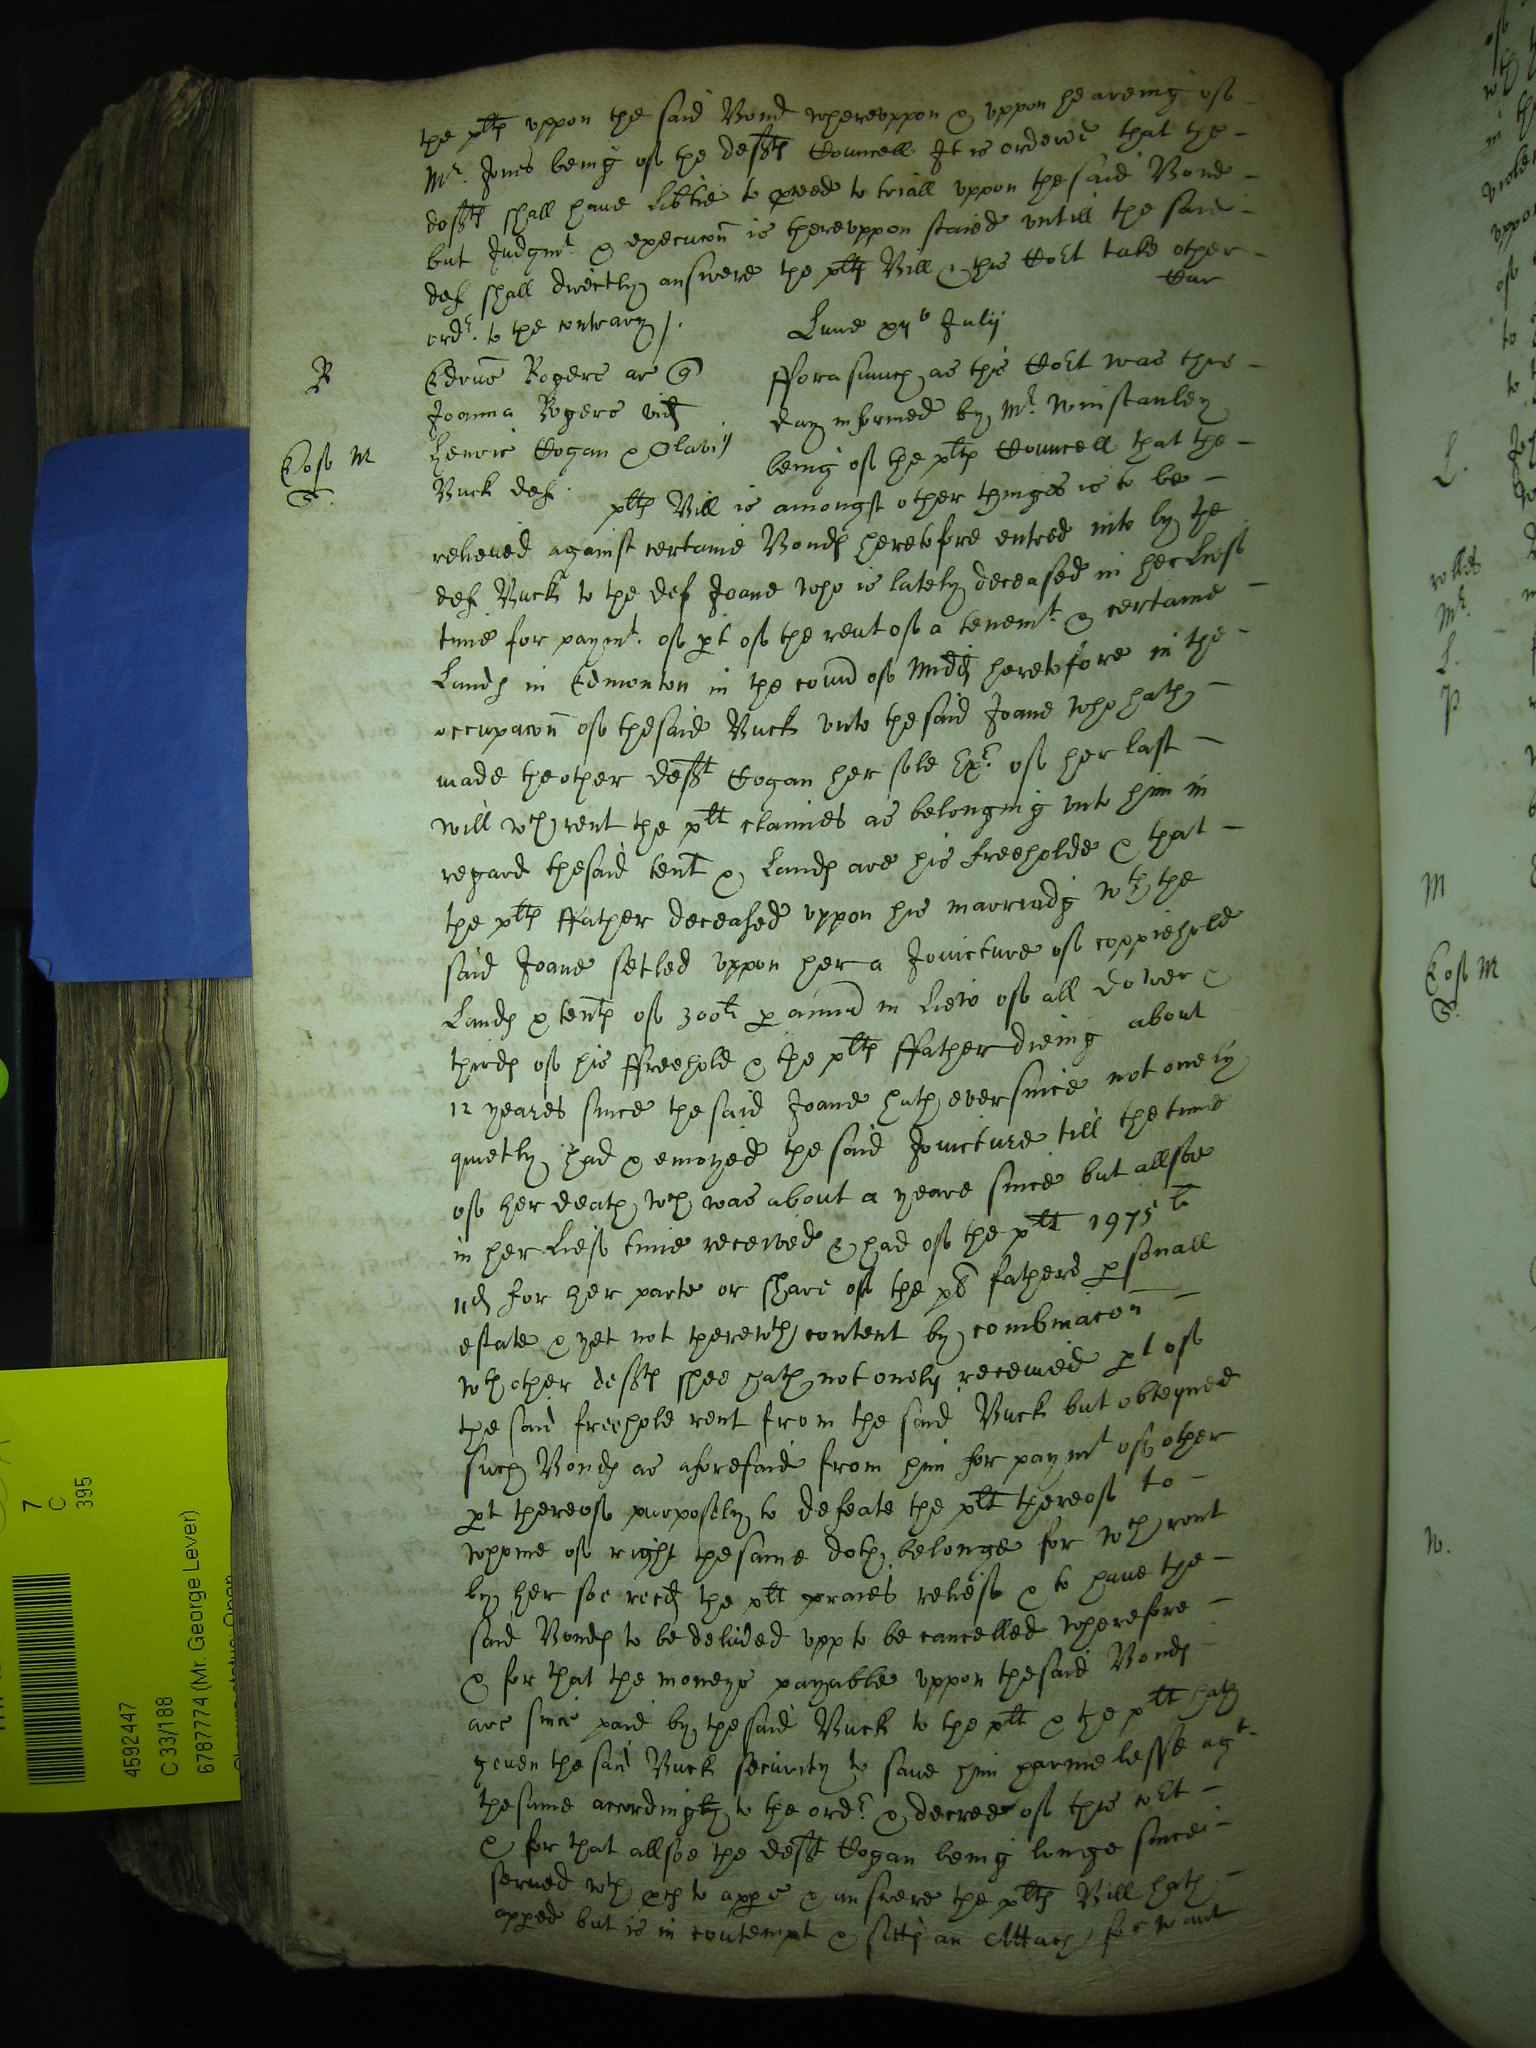 the plts uppon the said Bond whereuppon & uppon heareing of
Mr. Jones being of the defts Councell It is ordered that the
defts shall have libtie to pceed to triall uppon the said Bond
but Judgmt & execucon is thereuppon staied untill the said
def shall directly answere the plts Bill & this Cort take other
ordr. to the contrary /.
Car
Lune xijo Julij
R
Edrus Rogers ar
Joanna Rogers vid
Henric Cogan & Olavij
Buck def.
fforasmuch as this Cort was this
day informed by Mr. Winstanley
being of the plts Councell that the
plts Bill is amongst other thinges is to be
relieved against certaine Bonds heretofore entred into by the
def Buck to the def Joane who is lately deceased in her lief
time for paymt. of pt of the rent of a tenemt. & certaine
Lands in Edmonton in the county of Midd heretofore in the
occupacon of the said Buck unto the said Joane who hath
made the other deft Cogan her sole Exr. of her last
will wch rent the plt claimes as belonging unto him in
regard the said tent & Lands are his freeholde & that
the plts ffather deceased uppon his marriadg wth the
said Joane setled uppon her a Joincture of coppiehold
Lands & tents of 300li p annu in liew of all dower &
thirds of his ffreehold & the plts ffather dieing about
12 yeares since the said Joane hath ever since not onely
quietly had & enioyed the said Joincture till the time
of her death wch was about a yeare since but allsoe
in her lief time received & had of the plt 1975 li
11d for her parte or share of the pls fathers psonall
estate & yet not therewth content by combinacon
wth other defts shee hath not onely received pt of
the said freehold rent from the said Buck but obteyned
such Bonds as aforesaid from him for paymt of other
pt thereof purposely to defeate the plt thereof to
whome of right the same doth belonge for wch rent
by her soe recd the plt praies relief & to have the
said Bonds to be delived upp to be cancelled wherefore
& for that the moneys payable uppon the said Bonds
are since paid by the said Buck to the plt & the plt hath
given the said Buck security to save him harmelesse agt
the same accordingly to the ordr & decree of this Cort
& for that allsoe the deft Cogan being longe since
served wth pces to appe & answere the plts Bill hath
apped but is in contempt & sitts an Attach for want
L.
Mr.
L.
P
M
W.
7
C
395
4592447
C 33/188
6787774 (Mr. George Lever)